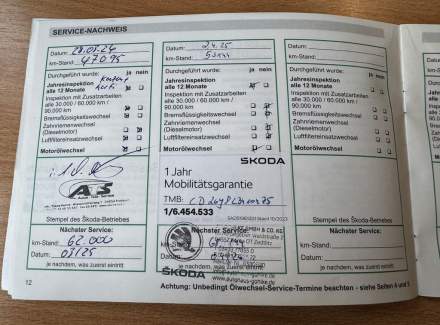 SERVICE-NACHWEIS
Datum: 28.03.24
km-Stand: 47095
Durchgeführt wurde: ja nein
Jahresinspektion
alle 12 Monate
Inspektion mit Zusatzarbeiten
alle 30.000 / 60.000 km /
90.000 km
Bremsflüssigkeitswechsel
Zahnriemenwechsel
(Dieselmotor)
Luftfiltereinsatzwechsel
Motorölwechsel
AS
Stempel des Škoda-Betriebes
Nächster Service:
km-Stand: 62.000
Datum: 03/25
je nachdem, was zuerst eintritt
12
Datum: 2.4.25
km-Stand:
Durchgeführt wurde: ja nein
Jahresinspektion
alle 12 Monate
Inspektion mit Zusatzarbeiten
alle 30.000 / 60.000 km /
90.000 km
Bremsflüssigkeitswechsel
Zahnriemenwechsel
(Dieselmotor)
Luftfiltereinsatzwechsel
Motorölwechsel
ŠKODA
1 Jahr
Mobilitätsgarantie
TMB:
1/6.454.533
Nächster Service:
km-Stand:
Datum:
ŠKODA
je nachdem, was zuerst eintritt
Datum:
km-Stand:
Durchgeführt wurde: ja nein
Jahresinspektion
alle 12 Monate
Inspektion mit Zusatzarbeiten
alle 30.000 / 60.000 km /
90.000 km
Bremsflüssigkeitswechsel
Zahnriemenwechsel
(Dieselmotor)
Luftfiltereinsatzwechsel
Motorölwechsel
Stempel des Škoda-Betriebes
Nächster Service:
km-Stand:
Datum:
je nachdem, was zuerst eintritt
Achtung: Unbedingt Ölwechsel-Service-Termine beachten - siehe Seiten 4 und 5